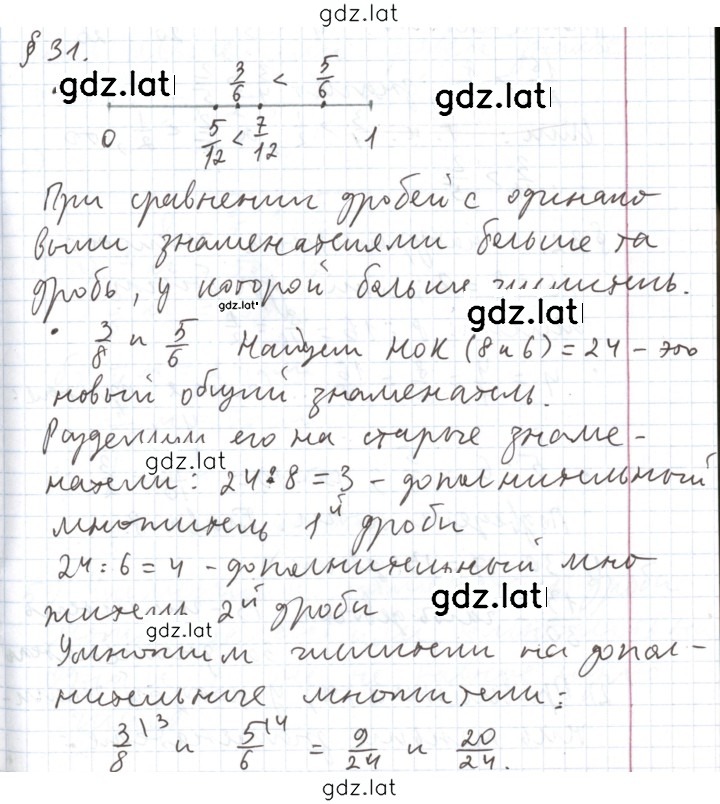 gdz.lat
§ 31.
gdz.lat
3/6 < 5/6
gdz.lat
0 5/12 < 7/12 1
При сравнении дробей с одинако
выми знаменателями больше та
дробь, у которой больше числитель.
gdz.lat
gdz.lat
• 3/8 и 5/6 Найдем НОК (8 и 6) = 24 – это
новый общий знаменатель.
Разделим его на старые знаме-
gdz.lat
натели: 24 : 8 = 3 – дополнительный
множитель 1й дроби
24 : 6 = 4 – дополнительный мно
gdz.lat
житель 2й дроби
gdz.lat
Умножим числители на допол-
нительные множители:
3/8 \3 и 5/6 \4 = 9/24 и 20/24.
gdz.lat